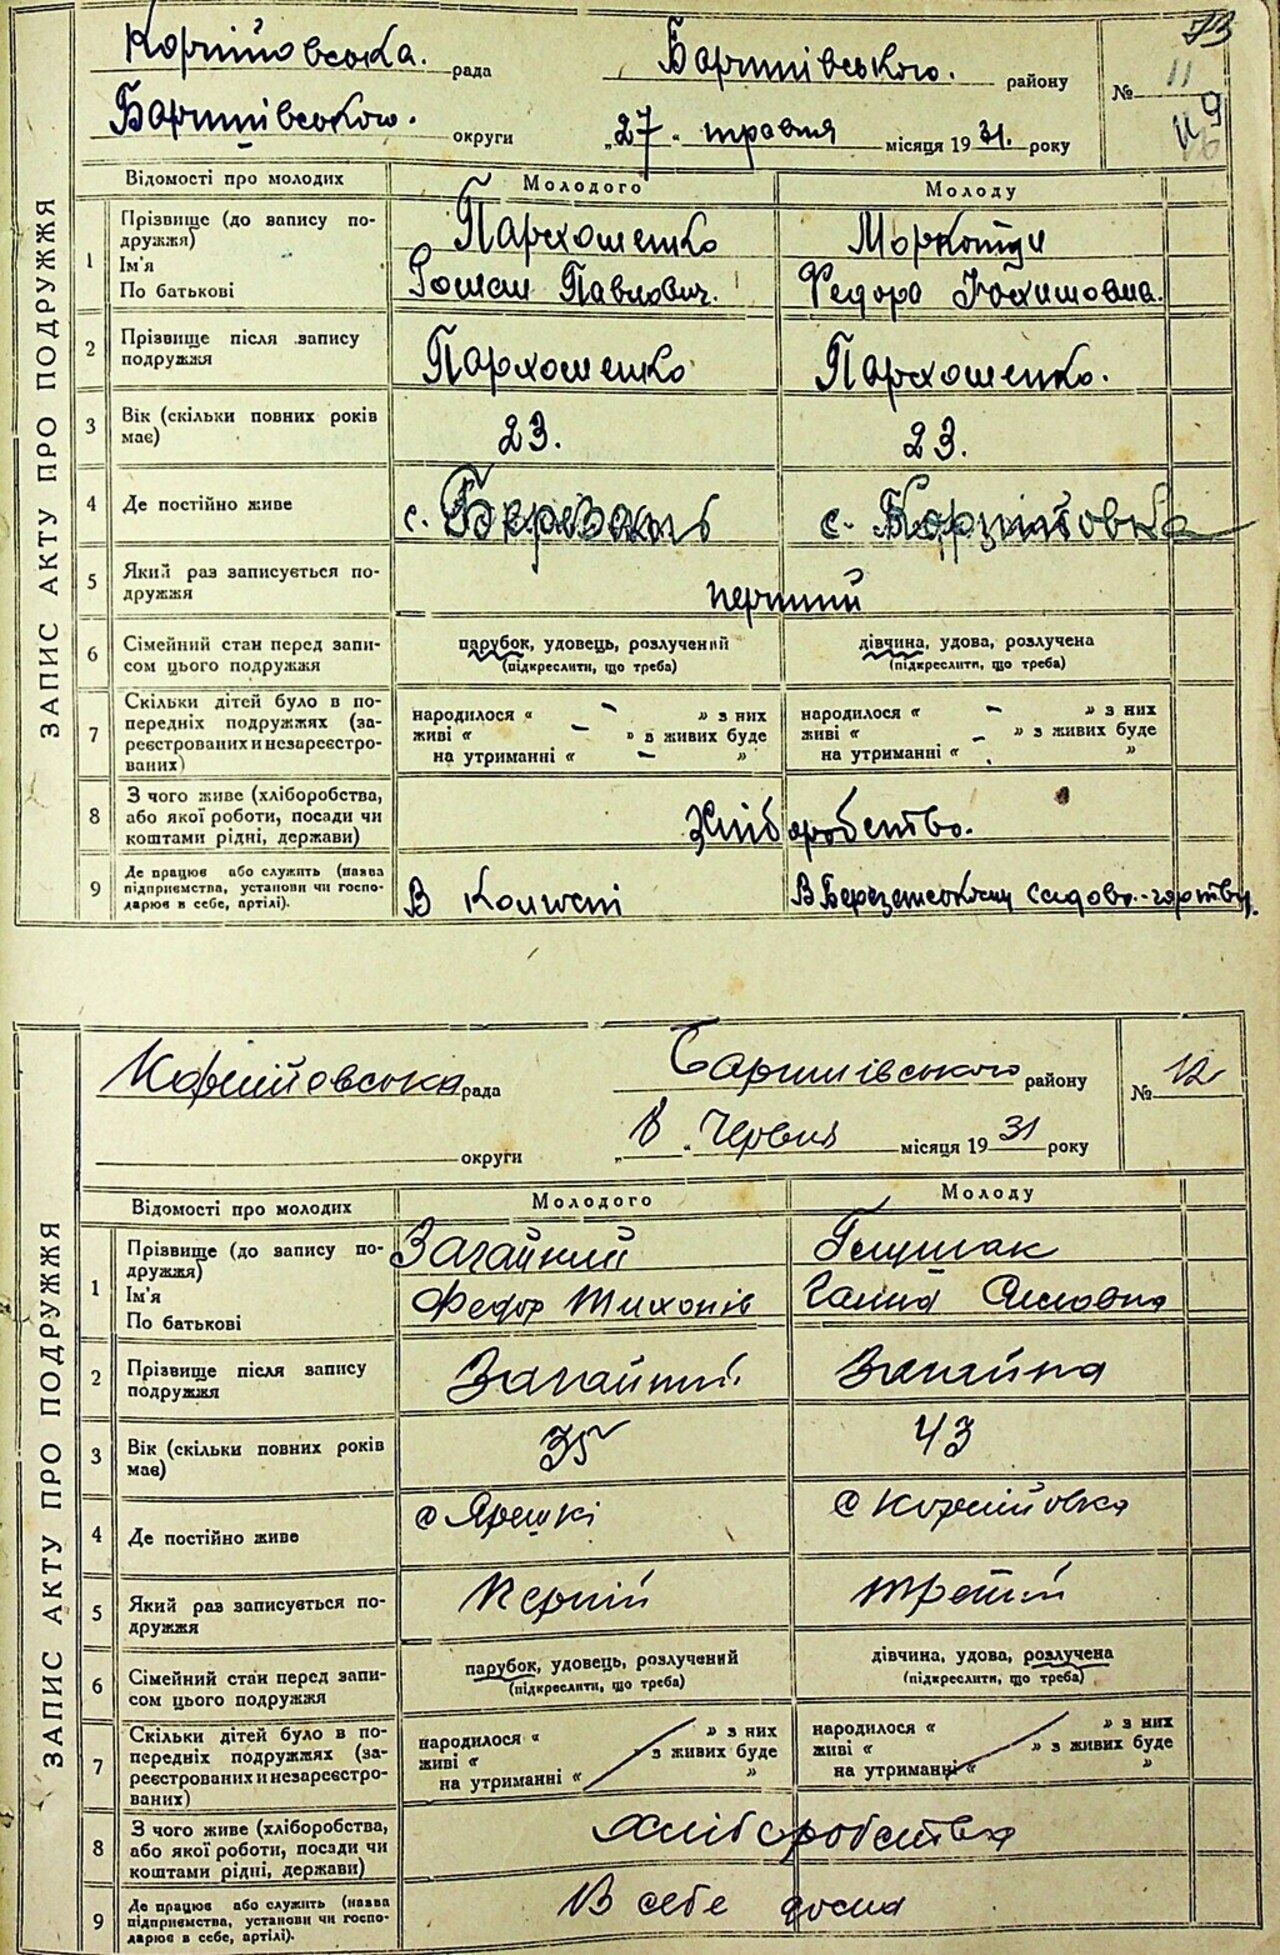 73
Корніїовська. рада Баришівського. району № 11
Баришівського. округи „27“ травня місяця 1931. року 9
ЗАПИС АКТУ ПРО ПОДРУЖЖЯ
Відомості про молодих Молодого Молоду
1 Прізвище (до запису по- Пархоменко
дружжя)
Ім'я Роман Павлович. Федора Юхимовна.
По батькові
2 Прізвище після запису Пархоменко Пархоменко.
подружжя
3 Вік (скільки повних років 23. 23.
має)
4 Де постійно живе с. Березань с.
5 Який раз записується по- перший
дружжя
6 Сімейний стан перед запи- парубок, удовець, розлучений дівчина, удова, розлучена
сом цього подружжя (підкреслити, що треба) (підкреслити, що треба)
7 Скільки дітей було в по- народилося « – » з них народилося « – » з них
передніх подружжях (за- живі « – » в живих буде живі « » з живих буде
реєстрованих и незареєстро- на утриманні « – » на утриманні « – »
ваних)
8 З чого живе (хліборобства, Хліборобство.
або якої роботи, посади чи
коштами рідні, держави)
9 Де працює або служить (назва В Колгоспі В Березанському
підприємства, установи чи госпо-
дарює в себе, артілі).
Корніїовська рада Баришівського району № 12
округи „8“ Червня місяця 1931 року
ЗАПИС АКТУ ПРО ПОДРУЖЖЯ
Відомості про молодих Молодого Молоду
1 Прізвище (до запису по- Загайний
дружжя)
Ім'я Федор Тихонів Ганна
По батькові
2 Прізвище після запису Загайний Загайна
подружжя
3 Вік (скільки повних років 35 43
має)
4 Де постійно живе с Ярешкі с Корніїовка
5 Який раз записується по- Перший третій
дружжя
6 Сімейний стан перед запи- парубок, удовець, розлучений дівчина, удова, розлучена
сом цього подружжя (підкреслити, що треба) (підкреслити, що треба)
7 Скільки дітей було в по- народилося « » з них народилося « » з них
передніх подружжях (за- живі « » з живих буде живі « » з живих буде
реєстрованих и незареєстро- на утриманні « » на утриманні « »
ваних)
8 З чого живе (хліборобства, хліборобства
або якої роботи, посади чи
коштами рідні, держави)
9 Де працює або служить (назва В себе дома
підприємства, установи чи госпо-
дарює в себе, артілі).